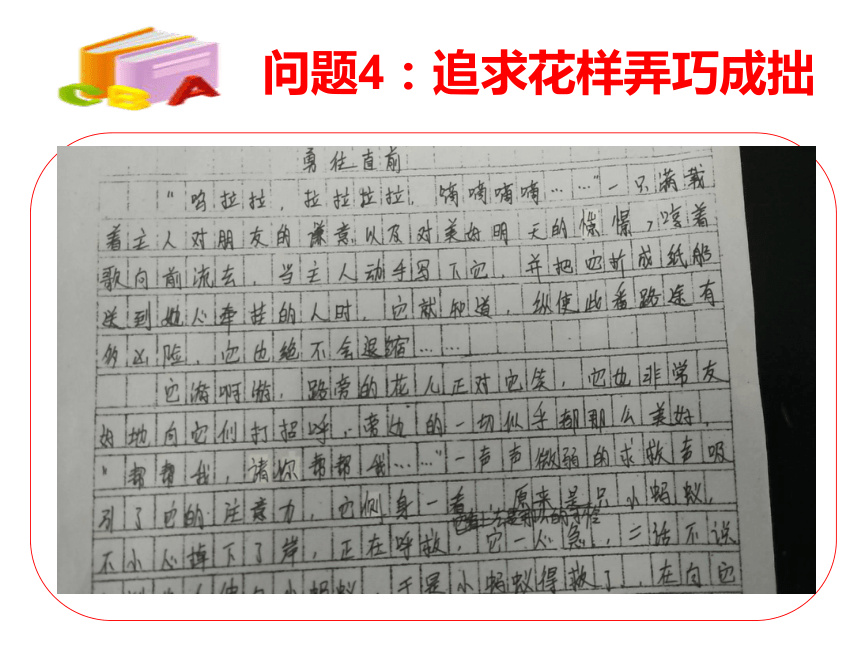 问题4：追求花样弄巧成拙
CBA
勇往直前
“呜拉拉，拉拉拉拉，嘀嘀嘀嘀……”一只满载
着主人对朋友的谦意以及对美好明天的憧憬，哼着
歌向前流去，当主人动手写下它，并把它折成纸船
送到她心牵挂的人时，它就知道，纵使此番路途有
多凶险，它也绝不会退缩……
它游啊游，路旁的花儿正对它笑，它也非常友
好地向它们打招呼，旁边的一切似乎都那么美好，
“帮帮我，请你帮帮我……”一声声微弱的求救声吸
引了它的注意力，它侧身一看，原来是只小蚂蚁，
不小心掉下了岸，正在呼救，它一心急，二话不说
小蚂蚁，于是小蚂蚁得救了，在向它